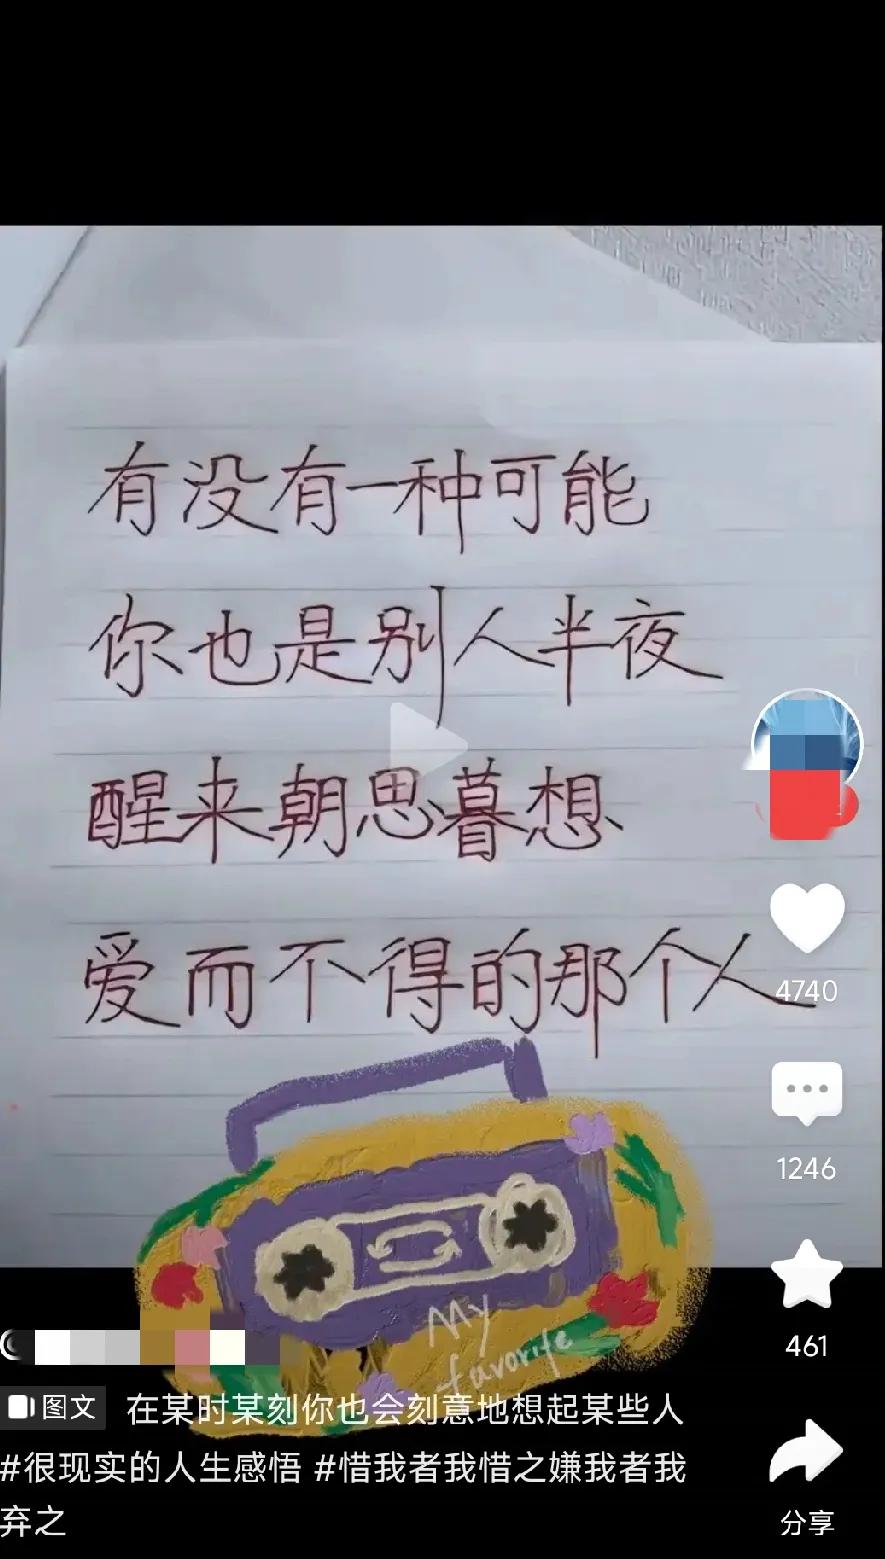 有没有一种可能
你也是别人半夜
醒来朝思暮想
爱而不得的那个人
4740
1246
My
favorite
461
图文 在某时某刻你也会刻意地想起某些人
#很现实的人生感悟 #惜我者我惜之嫌我者我
弃之
分享